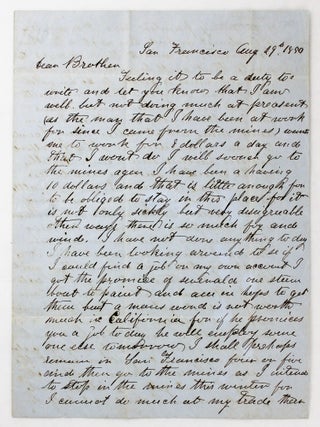 San Francisco Aug 29th 1850
Dear Brother
Feeling it to be a duty to
write and let you know that I am
well but not doing much at preasent
(as the man that I have been at work
for since I came from the mines) wants
me to work for 8 dollars a day and
that I wont do I will sooner go to
the mines again I have been a having
10 dollars and that is little enough for
to be obliged to stay in this place for it
is not only sickly but very disagreable
other ways there is so much fog and
wind. I have not don anything to day
I have been looking around to se if
I could find a job on my own account I
got the promice of one steam
boat to paint and acc in steps to go
there but a mans word is not worth
much in California for if he promices
you a job to day he will employ some
one else tomorrow I shall perhaps
remain in San Francisco four or five
and then go to the mines as I intend
to stop in the mines this winter for
I cannot do much at my trade then